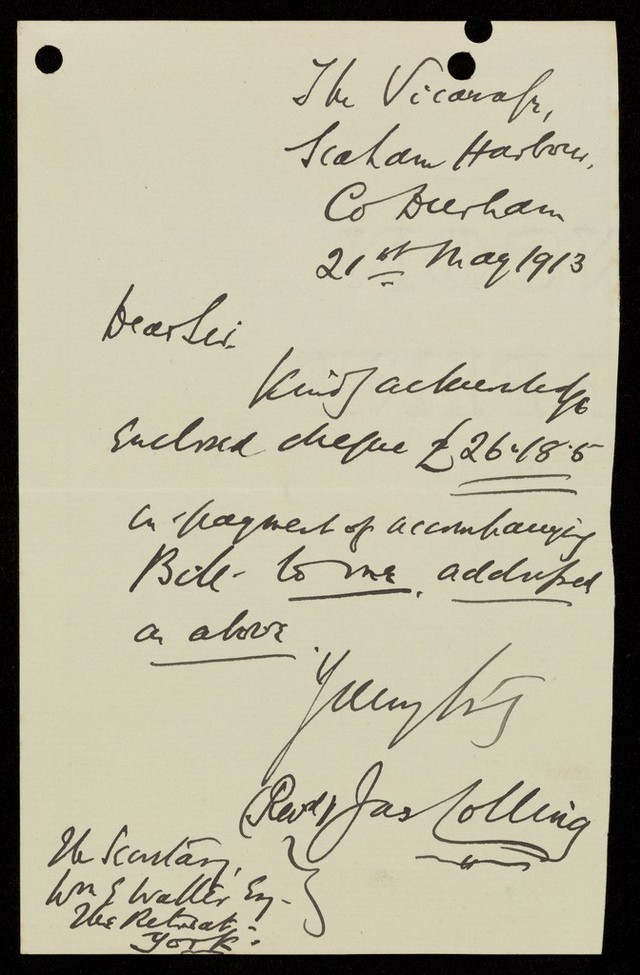 The Vicarage,
Seaham Harbour,
Co Durham
21st May 1913
Dear Sir.
Kindly acknowledge
Enclosed cheque £26.18.5
in payment of accompanying
Bill - to me, addressed
as above.
Yours truly
(Revd) Jas Colling
The Secretary,
Wm E Waller Esq -
The Retreat.
York.